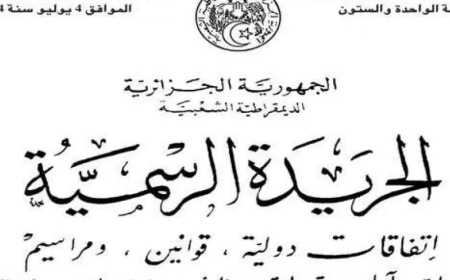 الواحدة والستون
الموافق 4 يوليو سنة
الجمهورية الجزائرية
الديمقراطية الشعبية
الجريدة الرسمية
اتفاقات دولية ، قوانين ، ومراسيم